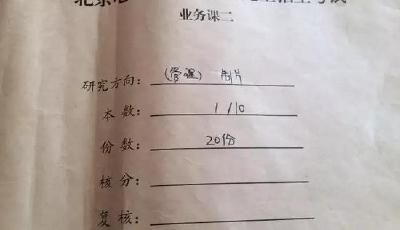 北京
业务课二
研究方向：（管理）制片
本数：1/10
份数：20份
核分：
复核：